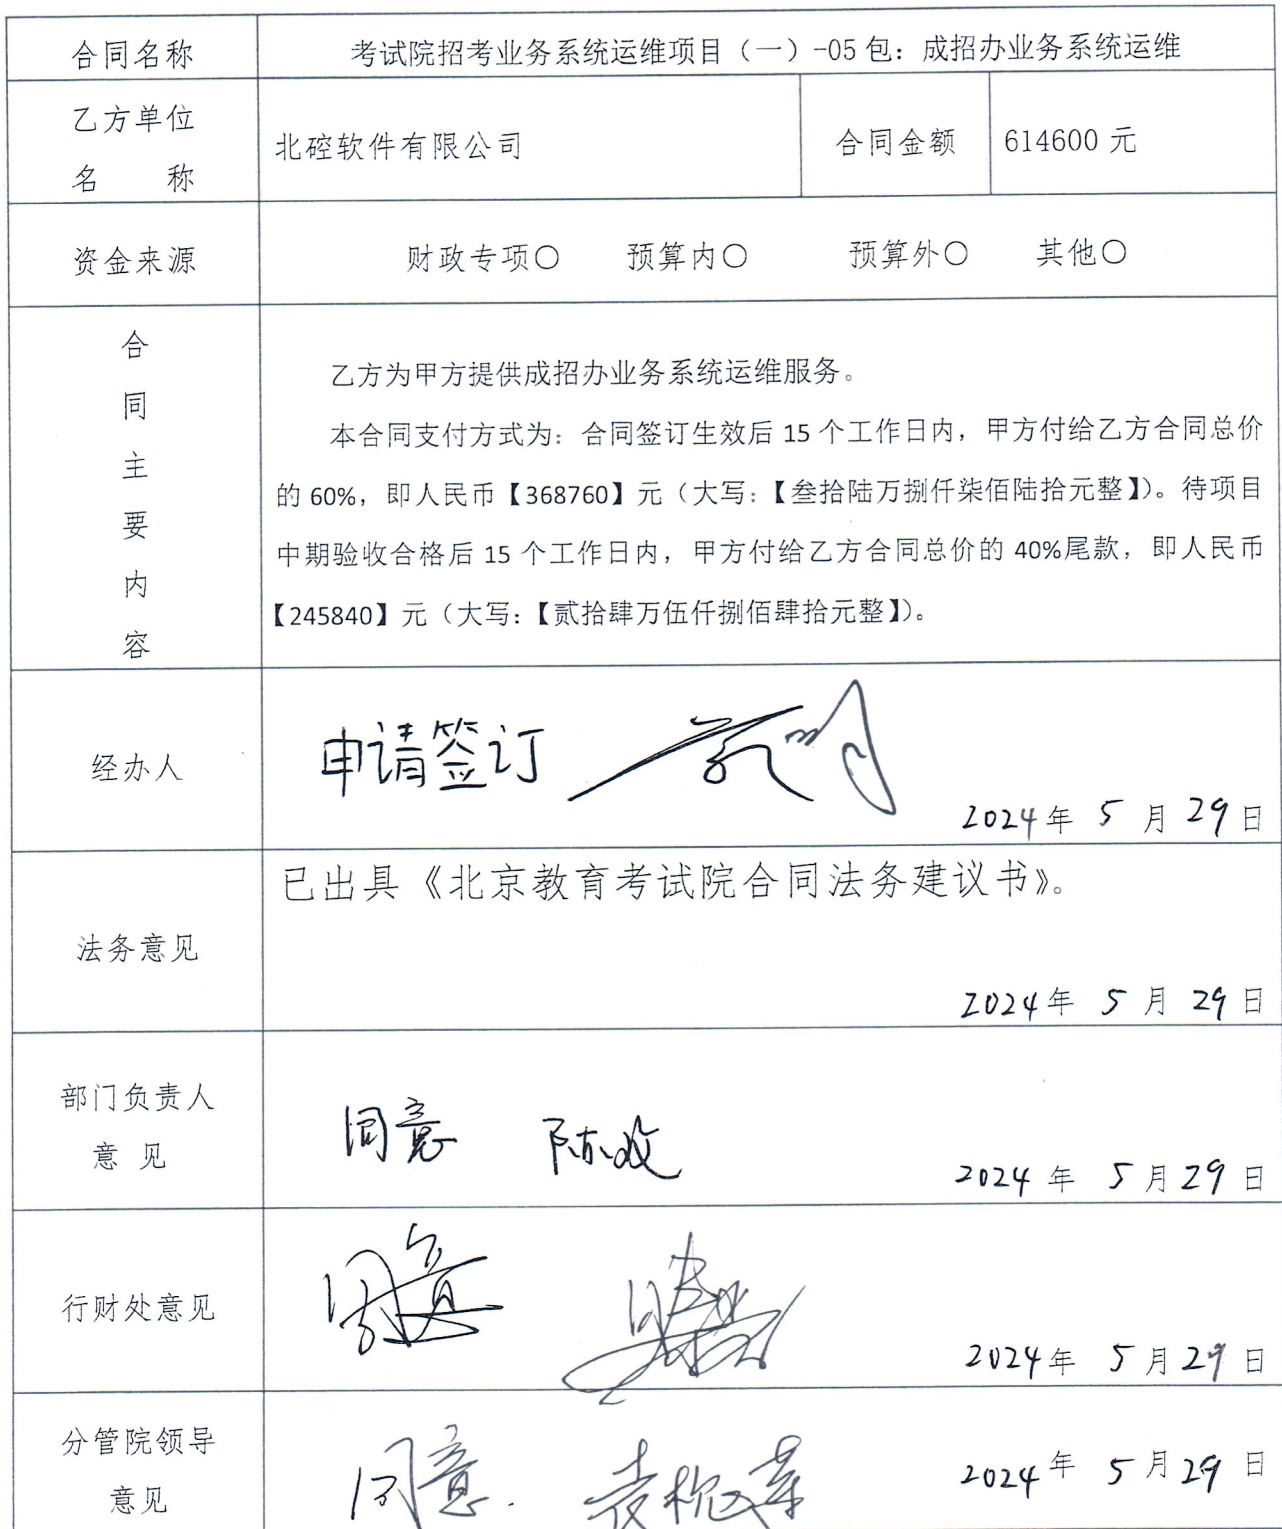 合同名称 考试院招考业务系统运维项目（一）-05包：成招办业务系统运维
乙方单位
名 称
北控软件有限公司 合同金额 614600元
资金来源 财政专项〇 预算内〇 预算外〇 其他〇
合
同
主
要
内
容
乙方为甲方提供成招办业务系统运维服务。
本合同支付方式为：合同签订生效后15个工作日内，甲方付给乙方合同总价
的60%，即人民币【368760】元（大写：【叁拾陆万捌仟柒佰陆拾元整】）。待项目
中期验收合格后15个工作日内，甲方付给乙方合同总价的40%尾款，即人民币
【245840】元（大写：【贰拾肆万伍仟捌佰肆拾元整】）。
经办人 申请签订
2024年 5 月 29 日
法务意见
已出具《北京教育考试院合同法务建议书》。
2024年 5 月 29 日
部门负责人
意 见
同意
2024 年 5 月 29 日
行财处意见 同意
2024年 5 月 29 日
分管院领导
意见
同意.
2024年 5 月 29 日